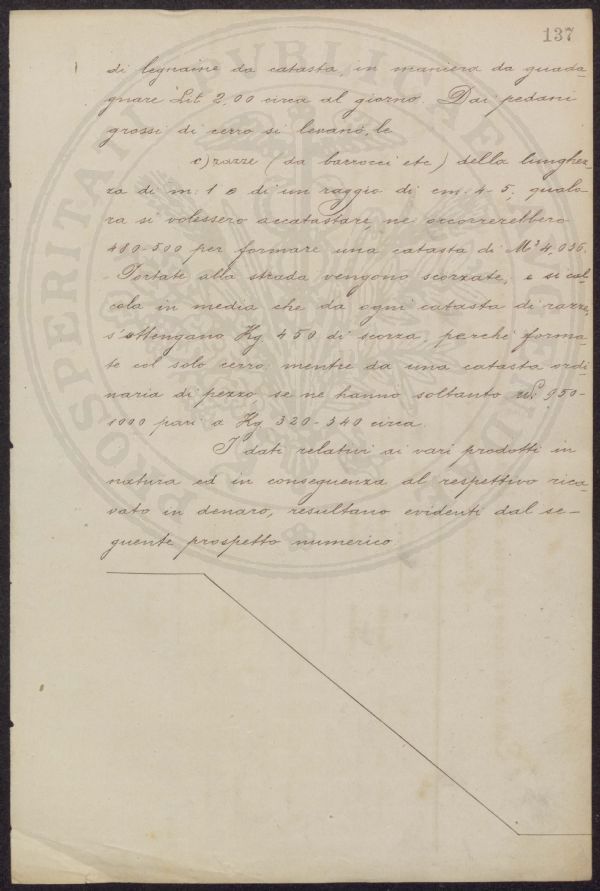 137
di legname da catasta, in maniera da guada-
gnare Lit 2,00 circa al giorno. Dai pedani
grossi di cerro si levano, le
c) razze (da barrocci etc) della lunghez-
za di m. 1 e di un raggio di cm. 4-5; qualo-
ra si volessero accatastare, ne occorrerebbero
480-500 per formare una catasta di M³ 4,036.
- Portate alla strada vengono scorzate, e si cal-
cola in media che da ogni catasta di razze,
s'ottengano Kg. 450 di scorza, perchè forma-
te col solo cerro; mentre da una catasta ordi-
naria di pezzo, se ne hanno soltanto 950-
1000 pari a Kg 320-340 circa.
I dati relativi ai vari prodotti in
natura ed in conseguenza al respettivo rica-
vato in denaro, resultano evidenti dal se-
guente prospetto numerico